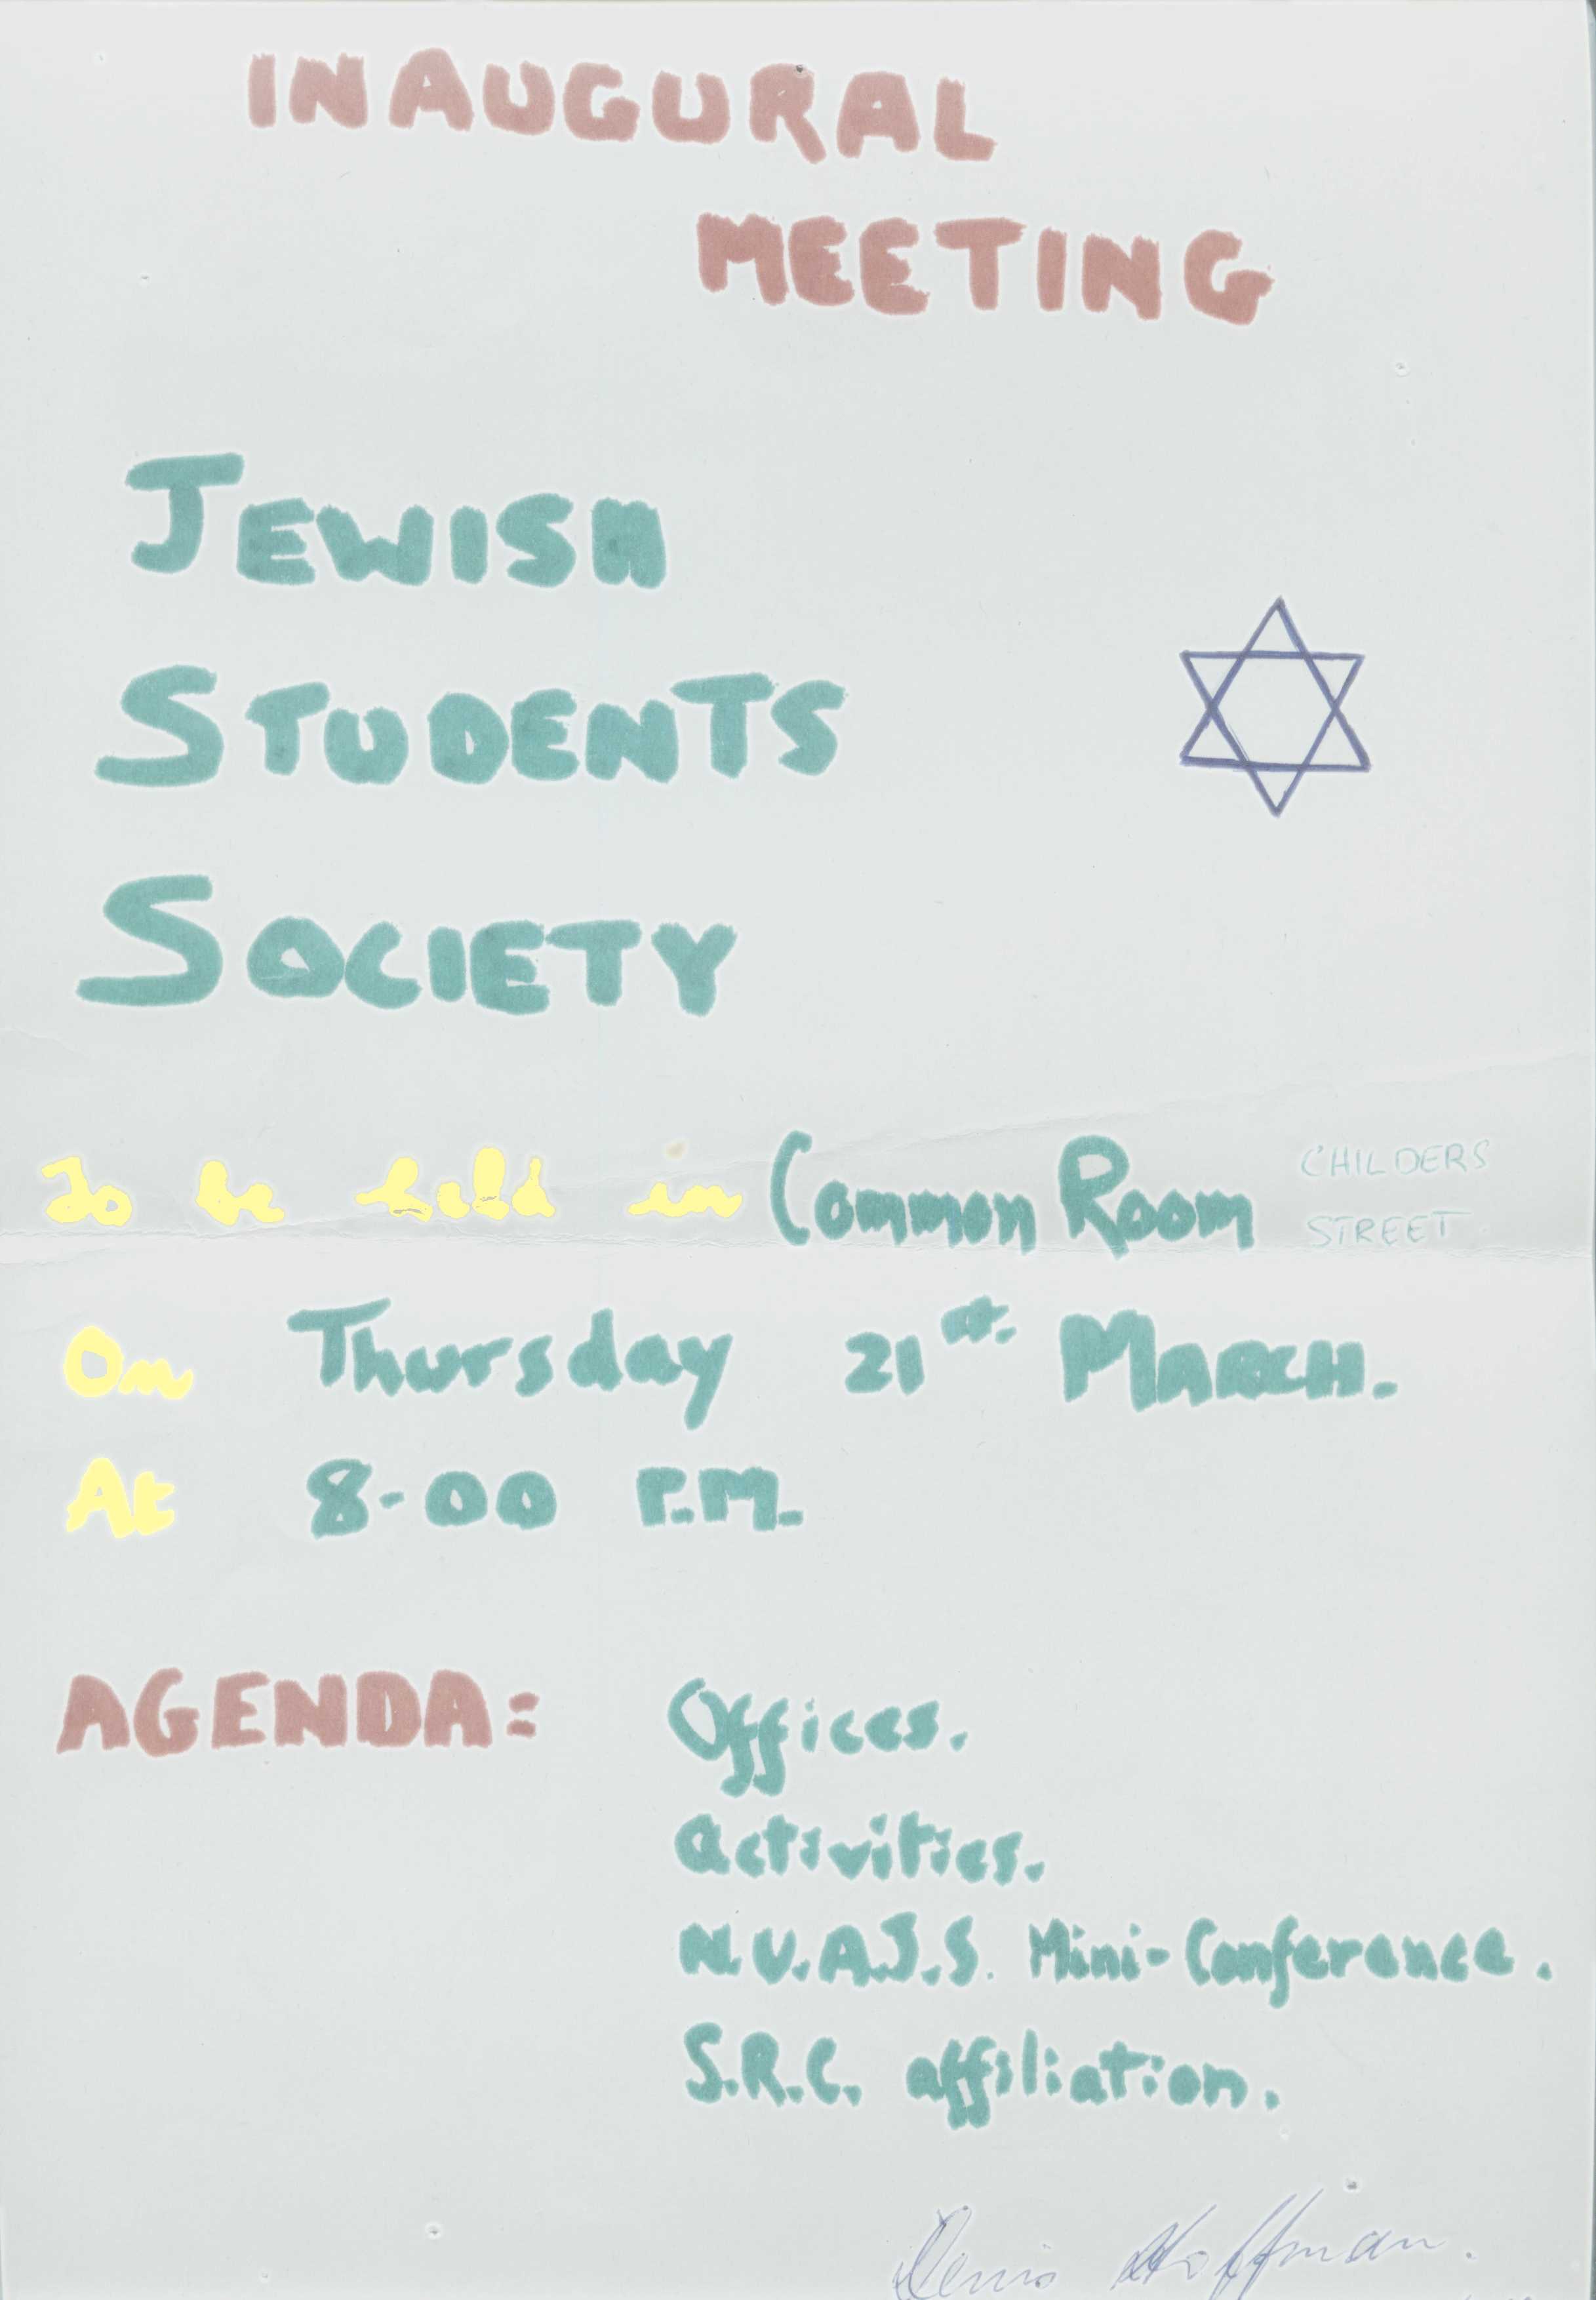 INAUGURAL
MEETING
JEWISH
STUDENTS
SOCIETY
To be held in Common Room CHILDERS
STREET
On Thursday 21st. MARCH.
At 8-00 P.M.
AGENDA: Offices.
Activities.
N.U.A.J.S. Mini-Conference.
S.R.C. affiliation.
Denis Hoffman.